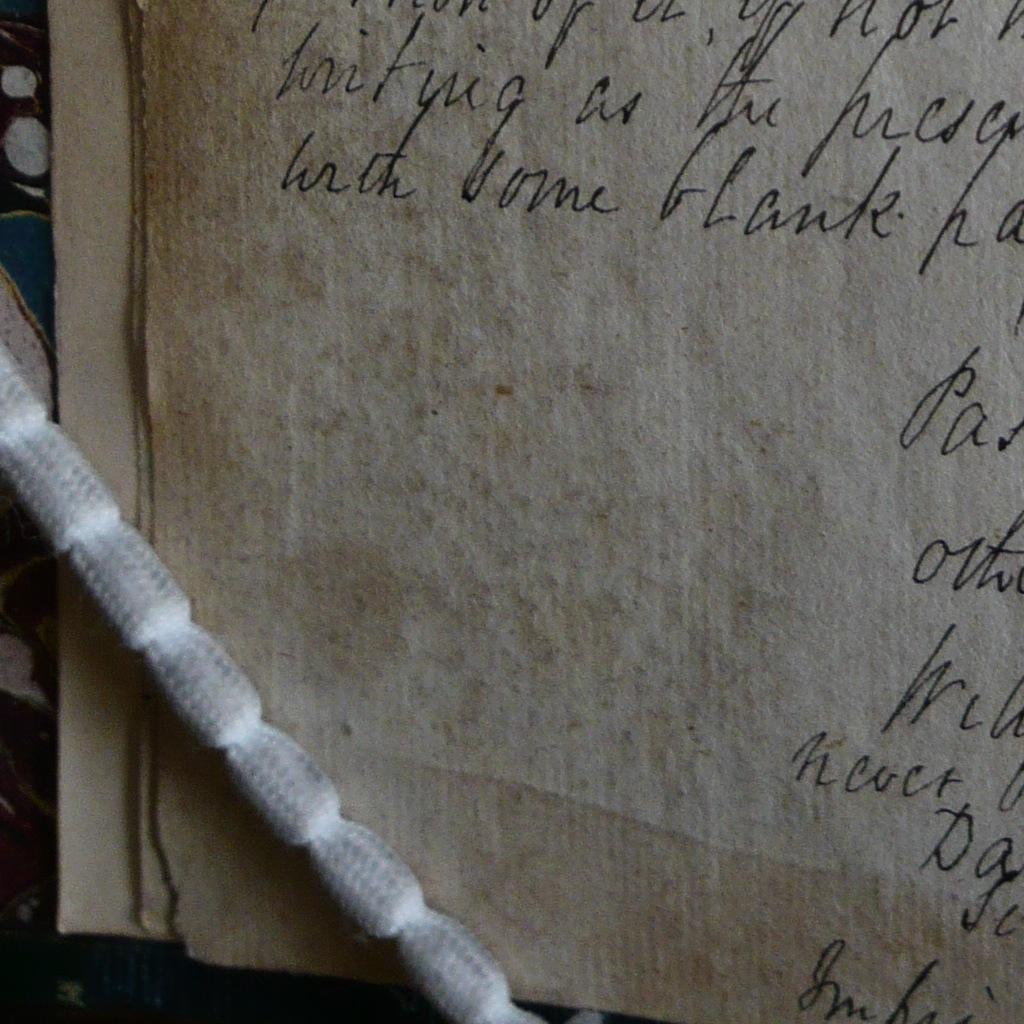 of it, if not
writing as the presen
with some blank pa
Pas
othe
Will
never
Da